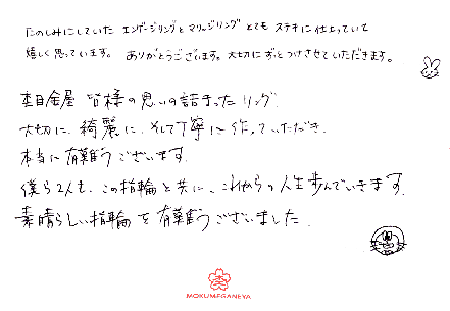 たのしみにしていた エンゲージリングとマリッジリング とても ステキに仕上っていて
嬉しく思っています。 ありがとうございます。大切にずっとつけさせていただきます。
杢目金屋 皆様の思いの詰まったリング。
大切に、綺麗に、そして丁寧に作っていただき、
本当に有難うございます。
僕ら2人も、この指輪と共に、これからの人生歩んでいきます。
素晴らしい指輪を有難うございました。
MOKUMEGANEYA